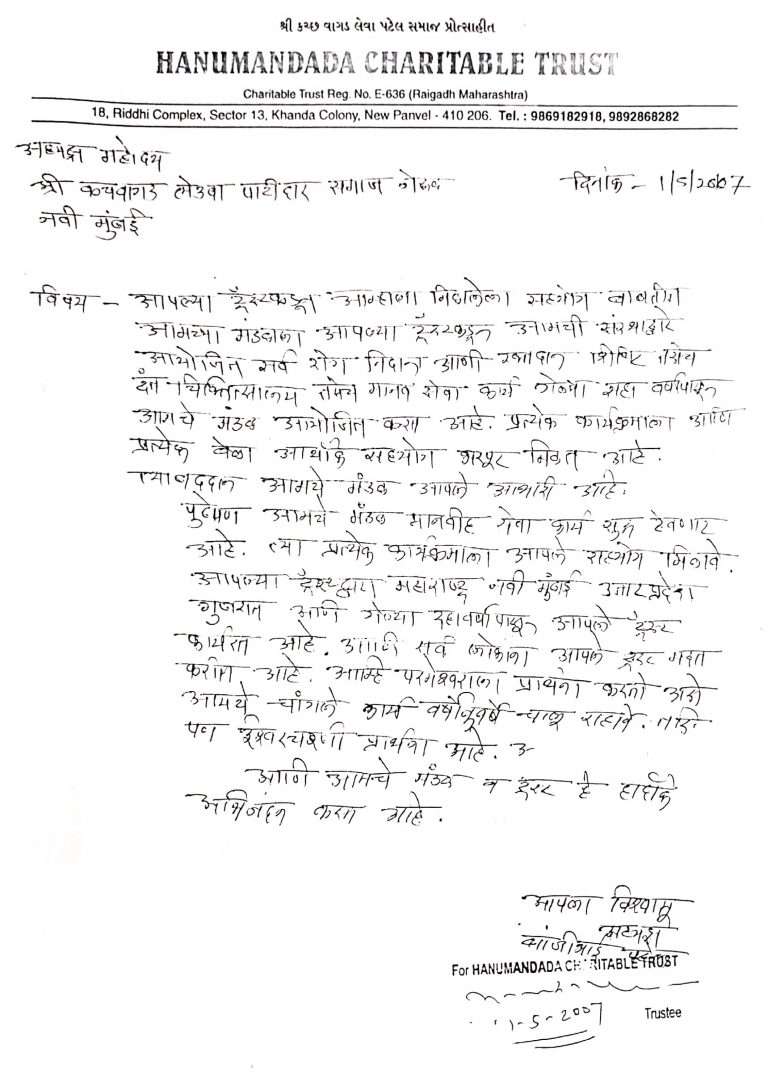 શ્રી કચ્છ વાગડ લેવા પટેલ સમાજ પ્રોત્સાહીત
HANUMANDADA CHARITABLE TRUST
Charitable Trust Reg. No. E-636 (Raigadh Maharashtra)
18, Riddhi Complex, Sector 13, Khanda Colony, New Panvel - 410 206. Tel. : 9869182918, 9892868282
अध्यक्ष महोदय
श्री कचवागड लेउवा पाटीदार समाज मंडळ दिनांक - 1/5/2007
नवी मुंबई
विषय - आपल्या ट्रस्टकडून आम्हाला मिळालेला सहयोग बाबतीत
आमच्या मंडळाला आपल्या ट्रस्टकडून आमची संस्थाद्वारे
आयोजित सर्व रोग निदान आणी रक्तदान शिबिर तसेच
दंत चिकित्सालय तसेच मानव सेवा कार्य गेल्या सहा वर्षापासून
आमचे मंडळ आयोजित करत आहे. प्रत्येक कार्यक्रमाला आणि
प्रत्येक वेळा आर्थिक सहयोग भरपूर मिळत आहे.
त्याबद्दल आमचे मंडळ आपले आभारी आहे.
पुढेपण आमचे मंडळ मानवीह सेवा कार्य सुरू ठेवणार
आहे. त्या प्रत्येक कार्यक्रमाला आपले सहयोग मिळावे.
आपल्या ट्रस्टद्वारा महाराष्ट्र नवी मुंबई उत्तरप्रदेश
गुजरात आणि गेल्या दहावर्षापासून आपले ट्रस्ट
कार्यरत आहे. आणी सर्व लोकांना आपले ट्रस्ट मदत
करीत आहे. आम्हि परमेश्वराला प्रार्थना करतो असे
आमचे चांगले कार्य वर्षानुवर्षे चालू राहावे.
पण ईश्वरचरणी प्रार्थना आहे.
आणी आमचे मंडळ व ट्रस्ट हे हार्दीक
अभिनंदन करत आहे.
आपला विश्वासू
For HANUMANDADA CHARITABLE TRUST
1-5-2007
Trustee